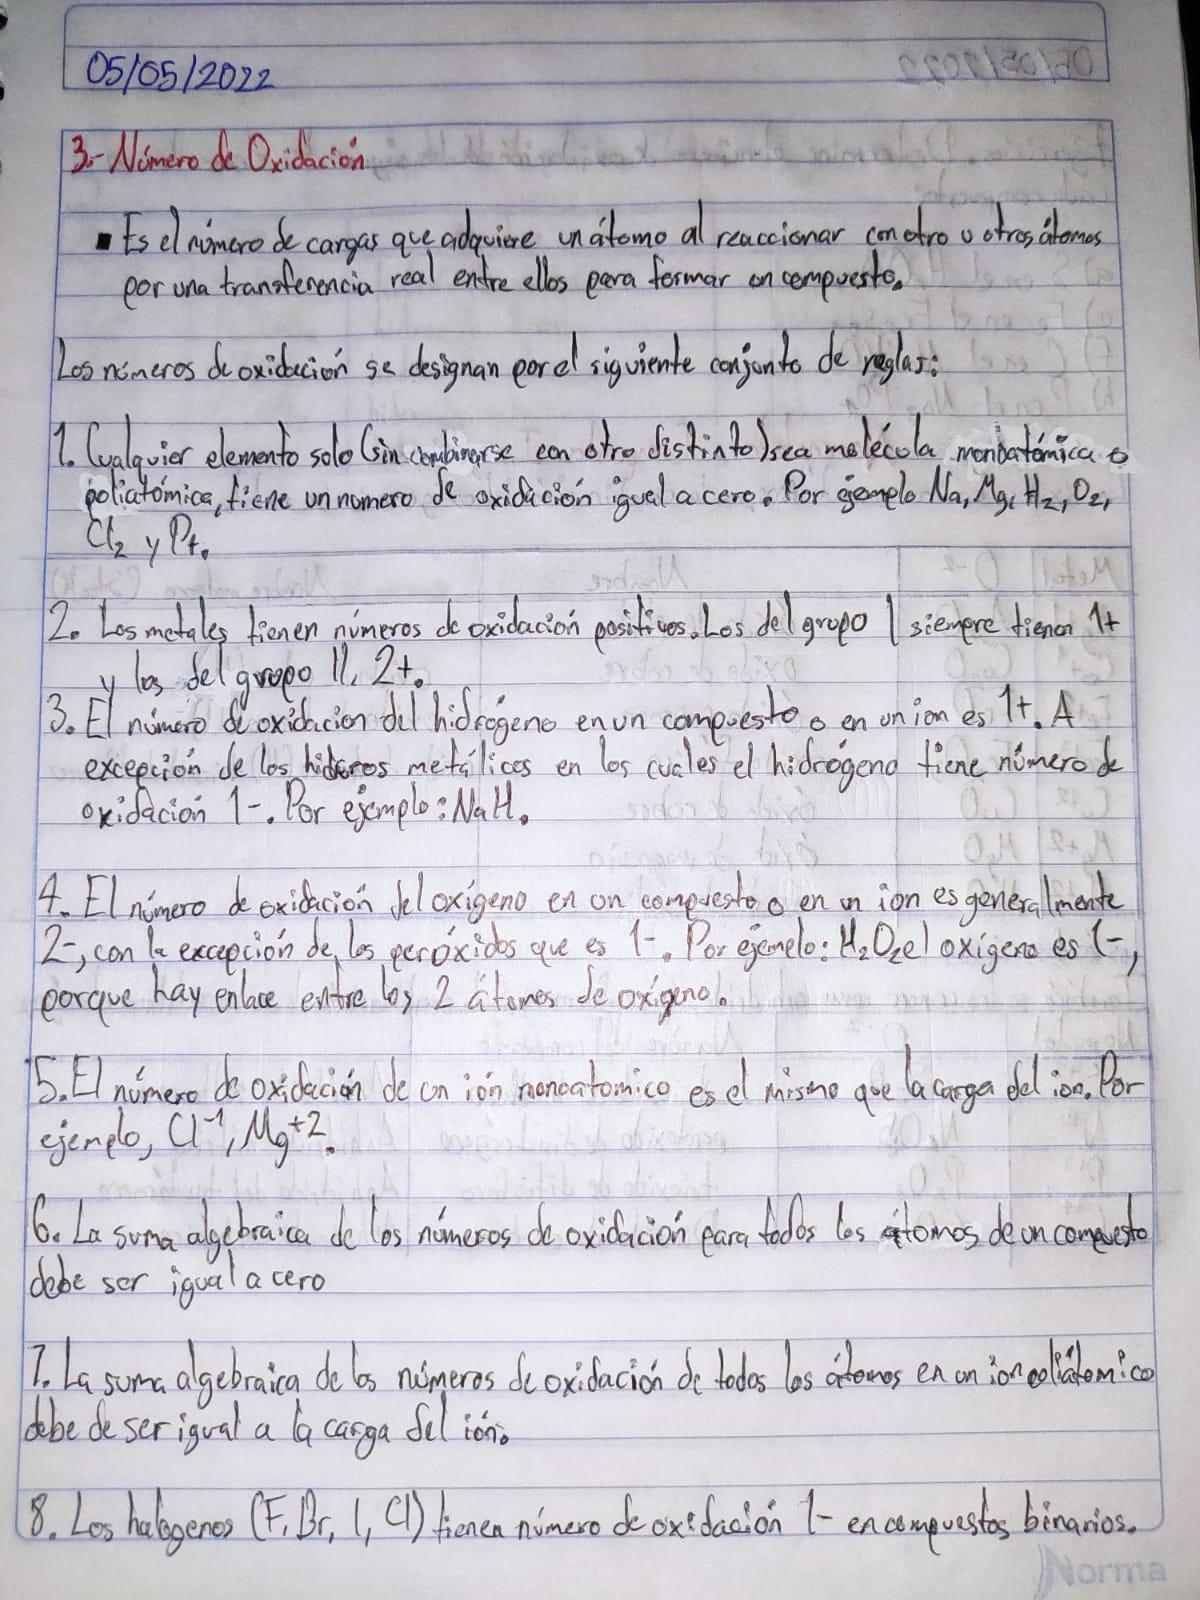 05/05/2022
3.- Número de Oxidación
▪ Es el número de cargas que adquiere un átomo al reaccionar con otro u otros átomos
por una transferencia real entre ellos para formar un compuesto.
Los números de oxidación se designan por el siguiente conjunto de reglas:
1. Cualquier elemento solo (sin combinarse con otro distinto) sea molécula monoatómica o
poliatómica, tiene un numero de oxidación igual a cero. Por ejemplo Na, Mg, H₂, O₂,
Cl₂ y Pt.
2. Los metales tienen números de oxidación positivos. Los del grupo I siempre tienen 1+
y los del grupo II, 2+.
3. El número de oxidacion del hidrógeno en un compuesto o en un ion es 1+. A
excepción de los hidruros metálicos en los cuales el hidrógeno tiene número de
oxidación 1-. Por ejemplo: NaH.
4. El número de oxidación del oxígeno en un compuesto o en un ion es generalmente
2-, con la excepción de los peróxidos que es 1-. Por ejemplo: H₂O₂ el oxígeno es 1-,
porque hay enlace entre los 2 átomos de oxígeno.
5. El número de oxidación de un ión monoatomico es el mismo que la carga del ion. Por
ejemplo, Cl⁻¹, Mg⁺2.
6. La suma algebraica de los números de oxidación para todos los átomos de un compuesto
debe ser igual a cero
7. La suma algebraica de los números de oxidación de todos los átomos en un ion poliátomico
debe de ser igual a la carga del ión.
8. Los halogenos (F, Br, I, Cl) tienen número de oxidación 1- en compuestos binarios.
Norma